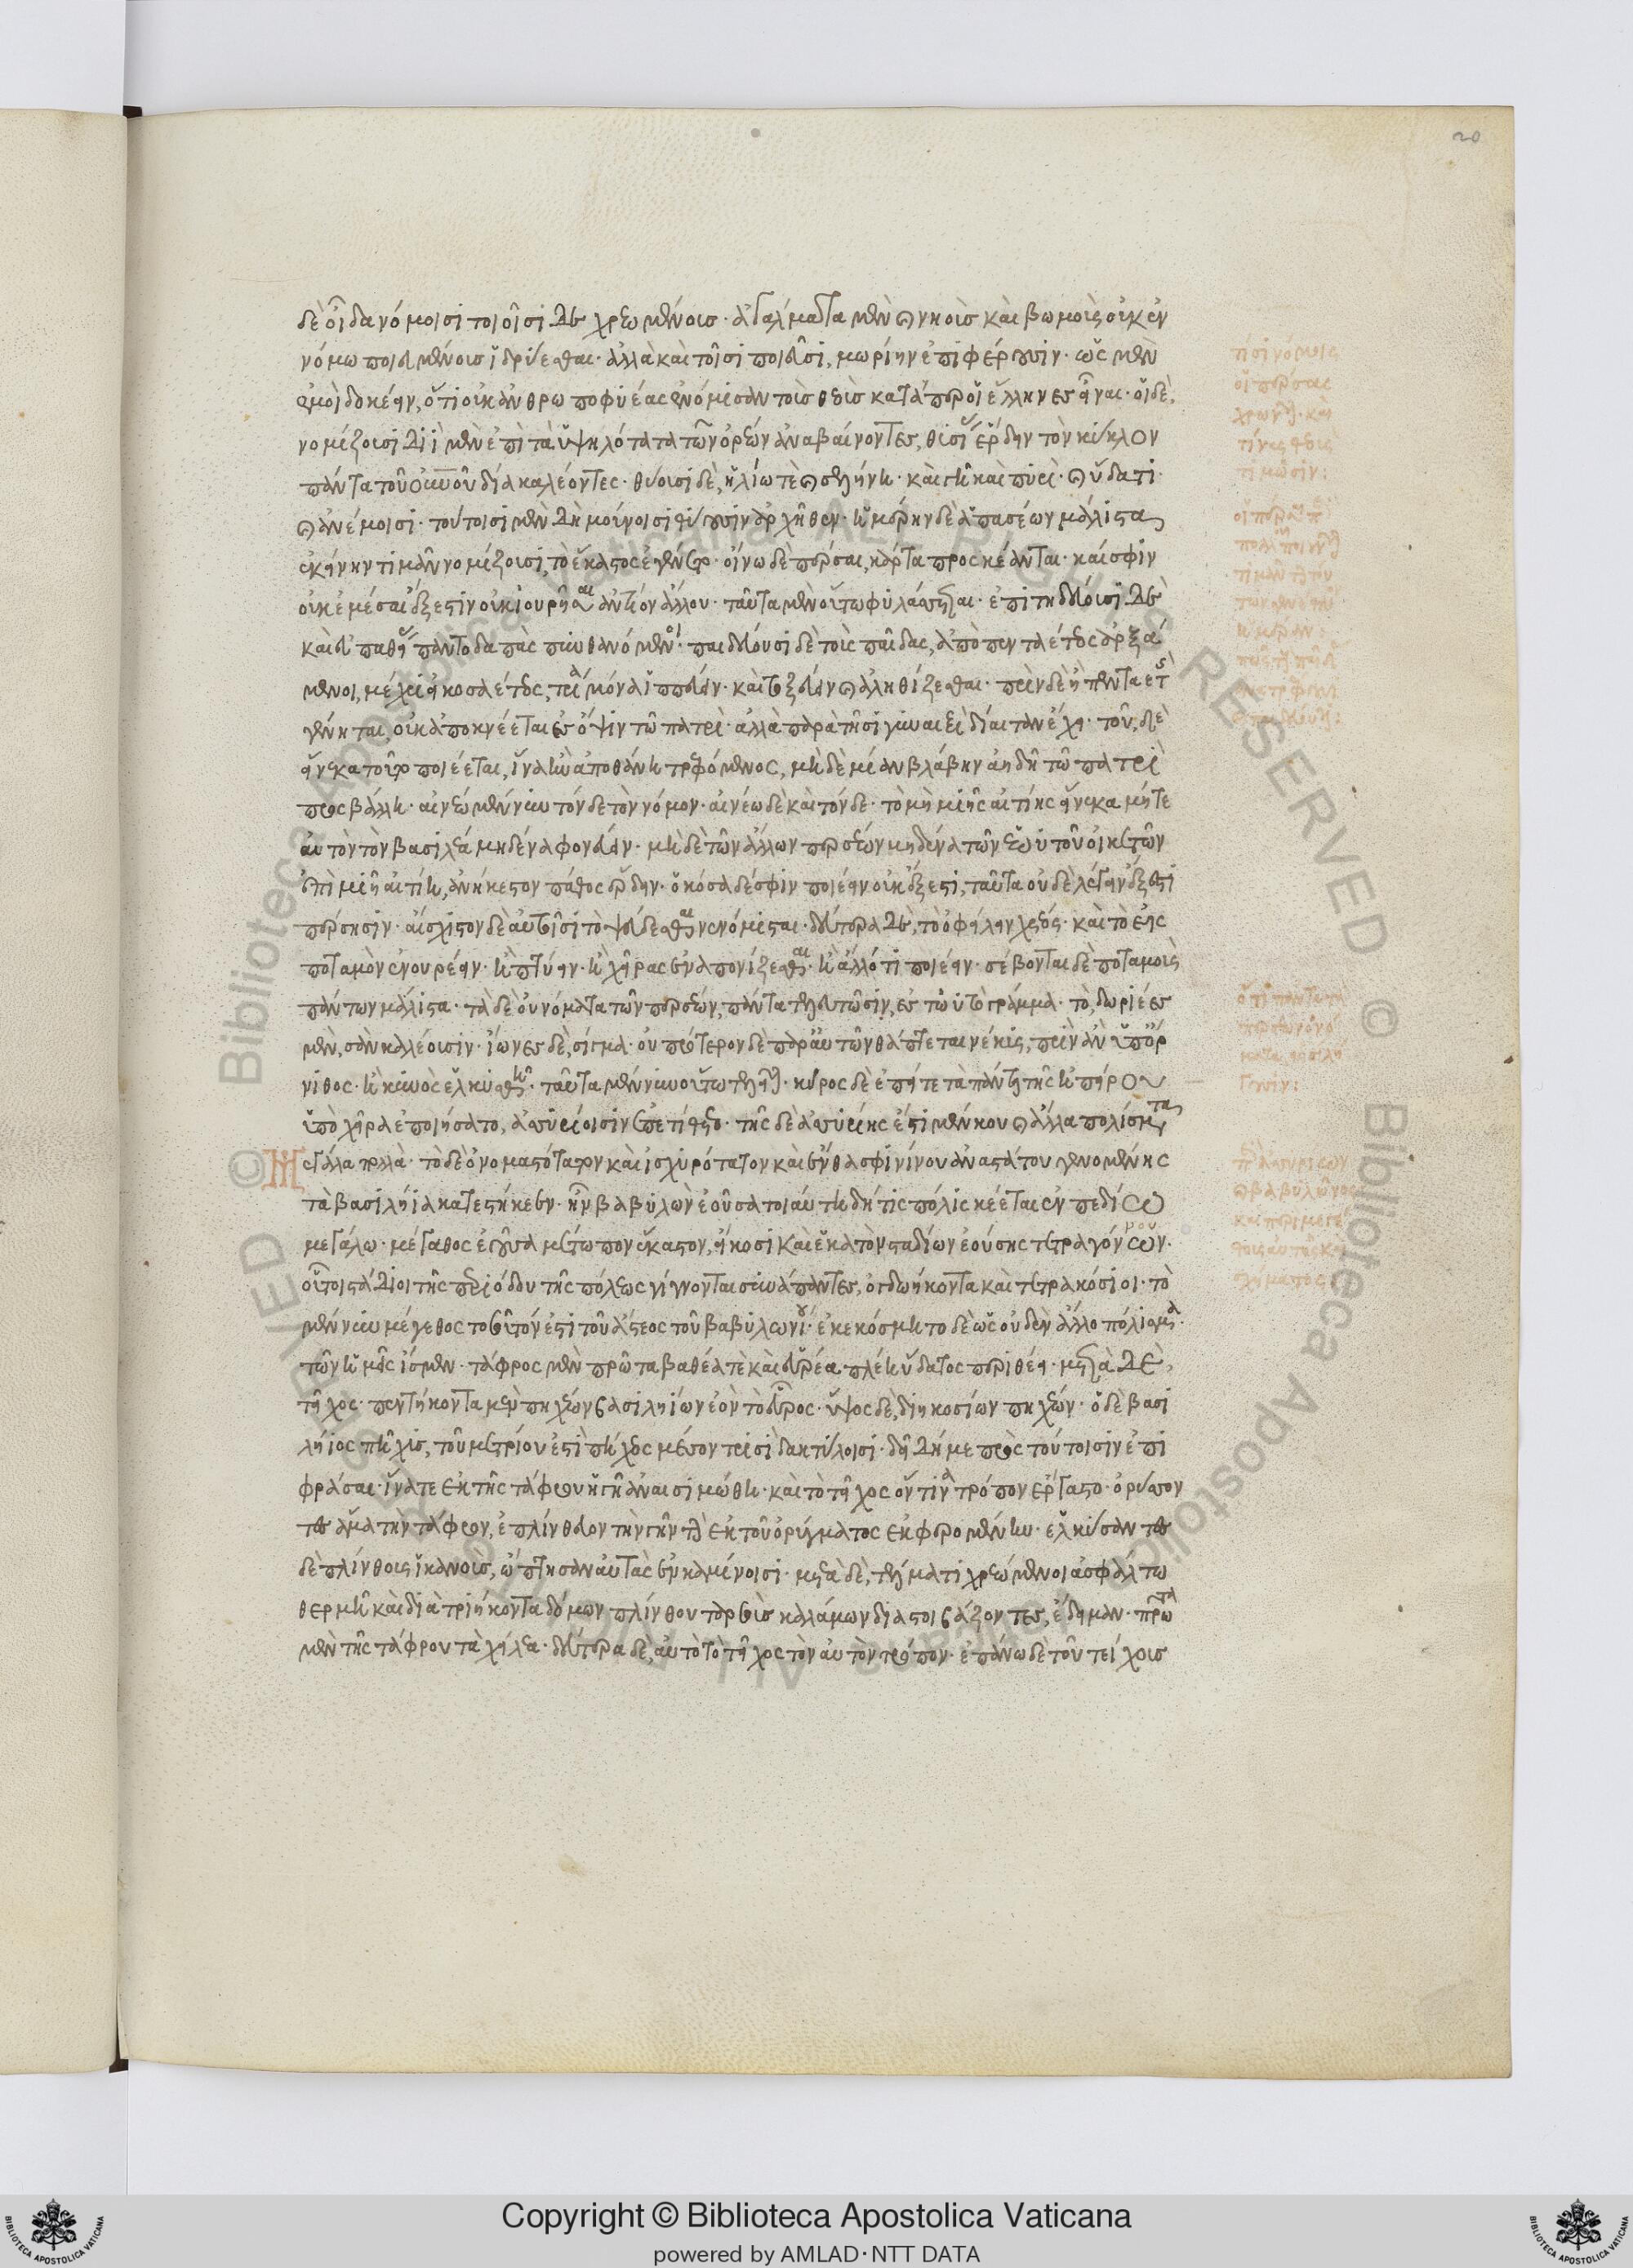 20
δὲ οἶδα νόμοισι τοιοῖσιδε χρεωμένοισ· ἀγάλματα μὲν καὶ νηοὺσ καὶ βωμοὺς οὐκ ἐν
νόμω ποιευμένουσ ἱδρύεσθαι· ἀλλὰ καὶ τοῖσι ποιεῦσι, μωρίην ἐπιφέρουσιν· ὡς μὲν
ἐμοὶ δοκέειν, ὅτι οὐκ ἀνθρωποφυέας ἐνόμισαν τοὺσ θεοὺσ κατάπερ οἱ ἕλληνες εἶναι· οἱ δὲ,
νομίζουσι διὶ μὲν ἐπὶ τὰ ὑψηλότατα τῶν ὀρέων ἀναβαίνοντες, θυσίας ἔρδειν τὸν κύκλον
πάντα τοῦ οὐνοῦ δία καλέοντες· θύουσι δὲ, ἡλίω τὲ καὶ σελήνη· καὶ γῆ καὶ πυρὶ· καὶ ὕδατι·
καὶ ἀνέμοισι· τούτοισι μὲν δὴ μούνοισι θύουσιν ἀρχῆθεν· ἡμέρην δὲ ἁπασέων μάλιστα
ἐκείνην τιμᾶν νομίζουσι, τὸ ἕκαστος ἐγένετο· οἴνω δὲ πέρσαι, κάρτα προσκέανται· καί σφιν
οὐκ ἐμέσαι ἔξεστιν οὐκὶ οὐρῆσαι ἀντίον ἄλλου· ταῦτα μὲν οὕτω φυλάσσεται· ἐπιτηδεύουσι δὲ
καὶ εὐπαθείας παντοδαπὰς πυνθανόμενοι· παιδεύουσι δὲ τοὺς παῖδας, ἀπὸ πενταέτεος ἀρξά
μενοι, μέχρι εἰκοσαέτεος, τρία μόνα ἱππεύειν· καὶ τοξεύειν καὶ ἀληθίζεσθαι· πρὶν δὲ ἢ πενταέτης
γένηται, οὐκ ἀπικνέεται ἐς ὄψιν τῶ πατρὶ· ἀλλὰ παρὰ τῆσι γυναιξὶ δίαιταν ἔχει· τοῦ, δὲ
εἵνεκα τοῦτο ποιέεται, ἵνα ἢν ἀποθάνη τρεφόμενος, μηδὲ μίαν βλάβην ἀηδῆ τῶ πατρὶ
προσβάλλη· αἰνέω μέν νυν τόνδε τὸν νόμον· αἰνέω δὲ καὶ τόνδε· τὸ μὴ μιῆς αἰτίης εἵνεκα μήτε
αὐτὸν τὸν βασιλέα μηδένα φονεύειν· μὴ δὲ τῶν ἄλλων περσέων μηδένα τῶν ἑωυτοῦ οἰκετῶν
ἐπὶ μιῆ αἰτίη, ἀνήκεστον πάθος ἔρδειν· ὁκόσα δέ σφιν ποιέειν οὐκ ἔξεστι, ταῦτα οὐδὲ λέγειν ἔξεστι
πέρσησιν· αἴσχιστον δὲ αὐτοῖσι τὸ ψεύδεσθαι νενόμισται· δεύτερα δὲ, τὸ ὀφείλειν χρέος· καὶ τὸ εἰς
ποταμὸν ἐνουρέειν· ἢ πτύειν· ἢ χεῖρας ἐναπονίζεσθαι· ἢ ἄλλό τι ποιέειν· σέβονται δὲ ποταμοὺς
πάντων μάλιστα· τὰ δὲ οὐνόματα τῶν περσέων, πάντα τελευτῶσιν, ἐς τὠυτὸ γράμμα· τὸ, δωριέες
μὲν, σὰν καλέουσιν· ἴωνες δὲ, σίγμα· οὐ πρότερον δὲ παρ' αὐτῶν θάπτεται νέκυς, πρὶν ἂν ὑπ' ὄρ
νιθος· ἢ κυνὸς ἑλκυσθῆ· ταῦτα μέν νυν οὕτω τελεῖται· κῦρος δὲ ἐπείτε τὰ πάντα τῆς ἠπείρου
ὑπὸ χεῖρα ἐποιήσατο, ἀσσυρίοισιν ἐπετίθετο· τῆς δὲ ἀσσυρίης ἐστὶ μέν κου καὶ ἄλλα πολίσματα
Μεγάλα πολλὰ· τὸ δὲ ὀνομαστότατον καὶ ἰσχυρότατον καὶ ἔνθα σφι νίνου ἀναστάτου γενομένης
τὰ βασιλήϊα κατεστήκεεν· ἦν βαβυλὼν ἐοῦσα τοιαύτη δή τις πόλις κέεται ἐν πεδίω
μεγάλω· μέγαθος ἐοῦσα μέτωπον ἕκαστον, εἴκοσι καὶ ἑκατὸν σταδίων ἐούσης τετραγώνου·
οὗτοι στάδιοι τῆς περιόδου τῆς πόλεως γίγνονται συνάπαντες, ὀγδώκοντα καὶ τετρακόσιοι· τὸ
μέν νυν μέγεθος τοσοῦτόν ἐστι τοῦ ἄστεος τοῦ βαβυλωνίου· ἐκεκόσμητο δὲ ὡς οὐδὲν ἄλλο πόλισμα·
τῶν ἡμεῖς ἴσμεν· τάφρος μὲν πρῶτα βαθέα τὲ καὶ εὐρέα πλέη ὕδατος περιθέει· μετὰ δὲ,
τεῖχος· πεντήκοντα μὲν πηχέων βασιληίων ἐὸν τὸ εὖρος· ὕψος δὲ, διηκοσίων πηχέων· ὁ δὲ βασι
λήιος πῆχις, τοῦ μετρίου ἐστὶ πήχεος μέζον τρισὶ δακτύλοισι· δεῖ δή με πρὸς τούτοισιν ἐπι
φράσαι· ἵνα τε ἐκ τῆς τάφρου ἡ γῆ ἀναισιμώθη· καὶ τὸ τεῖχος ὅντινα τρόπον ἔργαστο· ὀρύσσον
τες ἅμα τὴν τάφρον, ἐπλίνθευον τὴν γῆν τὴν ἐκ τοῦ ὀρύγματος ἐκφερομένην· ἑλκύσαντες
δὲ πλίνθους ἱκανοὺσ, ὤπτησαν αὐτὰς ἐν καμίνοισι· μετὰ δὲ, τέλματι χρεώμενοι ἀσφάλτω
θερμῆ καὶ διὰ τριήκοντα δόμων πλίνθου ταρσοὺς καλάμων διαστοιβάζοντες, ἔδειμαν· πρῶτα
μὲν τῆς τάφρου τὰ χείλεα· δεύτερα δὲ, αὐτὸ τὸ τεῖχος τὸν αὐτὸν τρόπον· ἐπάνω δὲ τοῦ τείχουσ
τίσι νόμοις
οἱ πέρσαι
τίνας θεοὺς
τιμῶσιν:
Copyright © Biblioteca Apostolica Vaticana
powered by AMLAD·NTT DATA